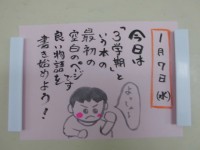 1月7日(水)
今日は
「3学期」と
いう本の
最初の
空白のページです
良い物語を
書き始めよう!
よっしゃー